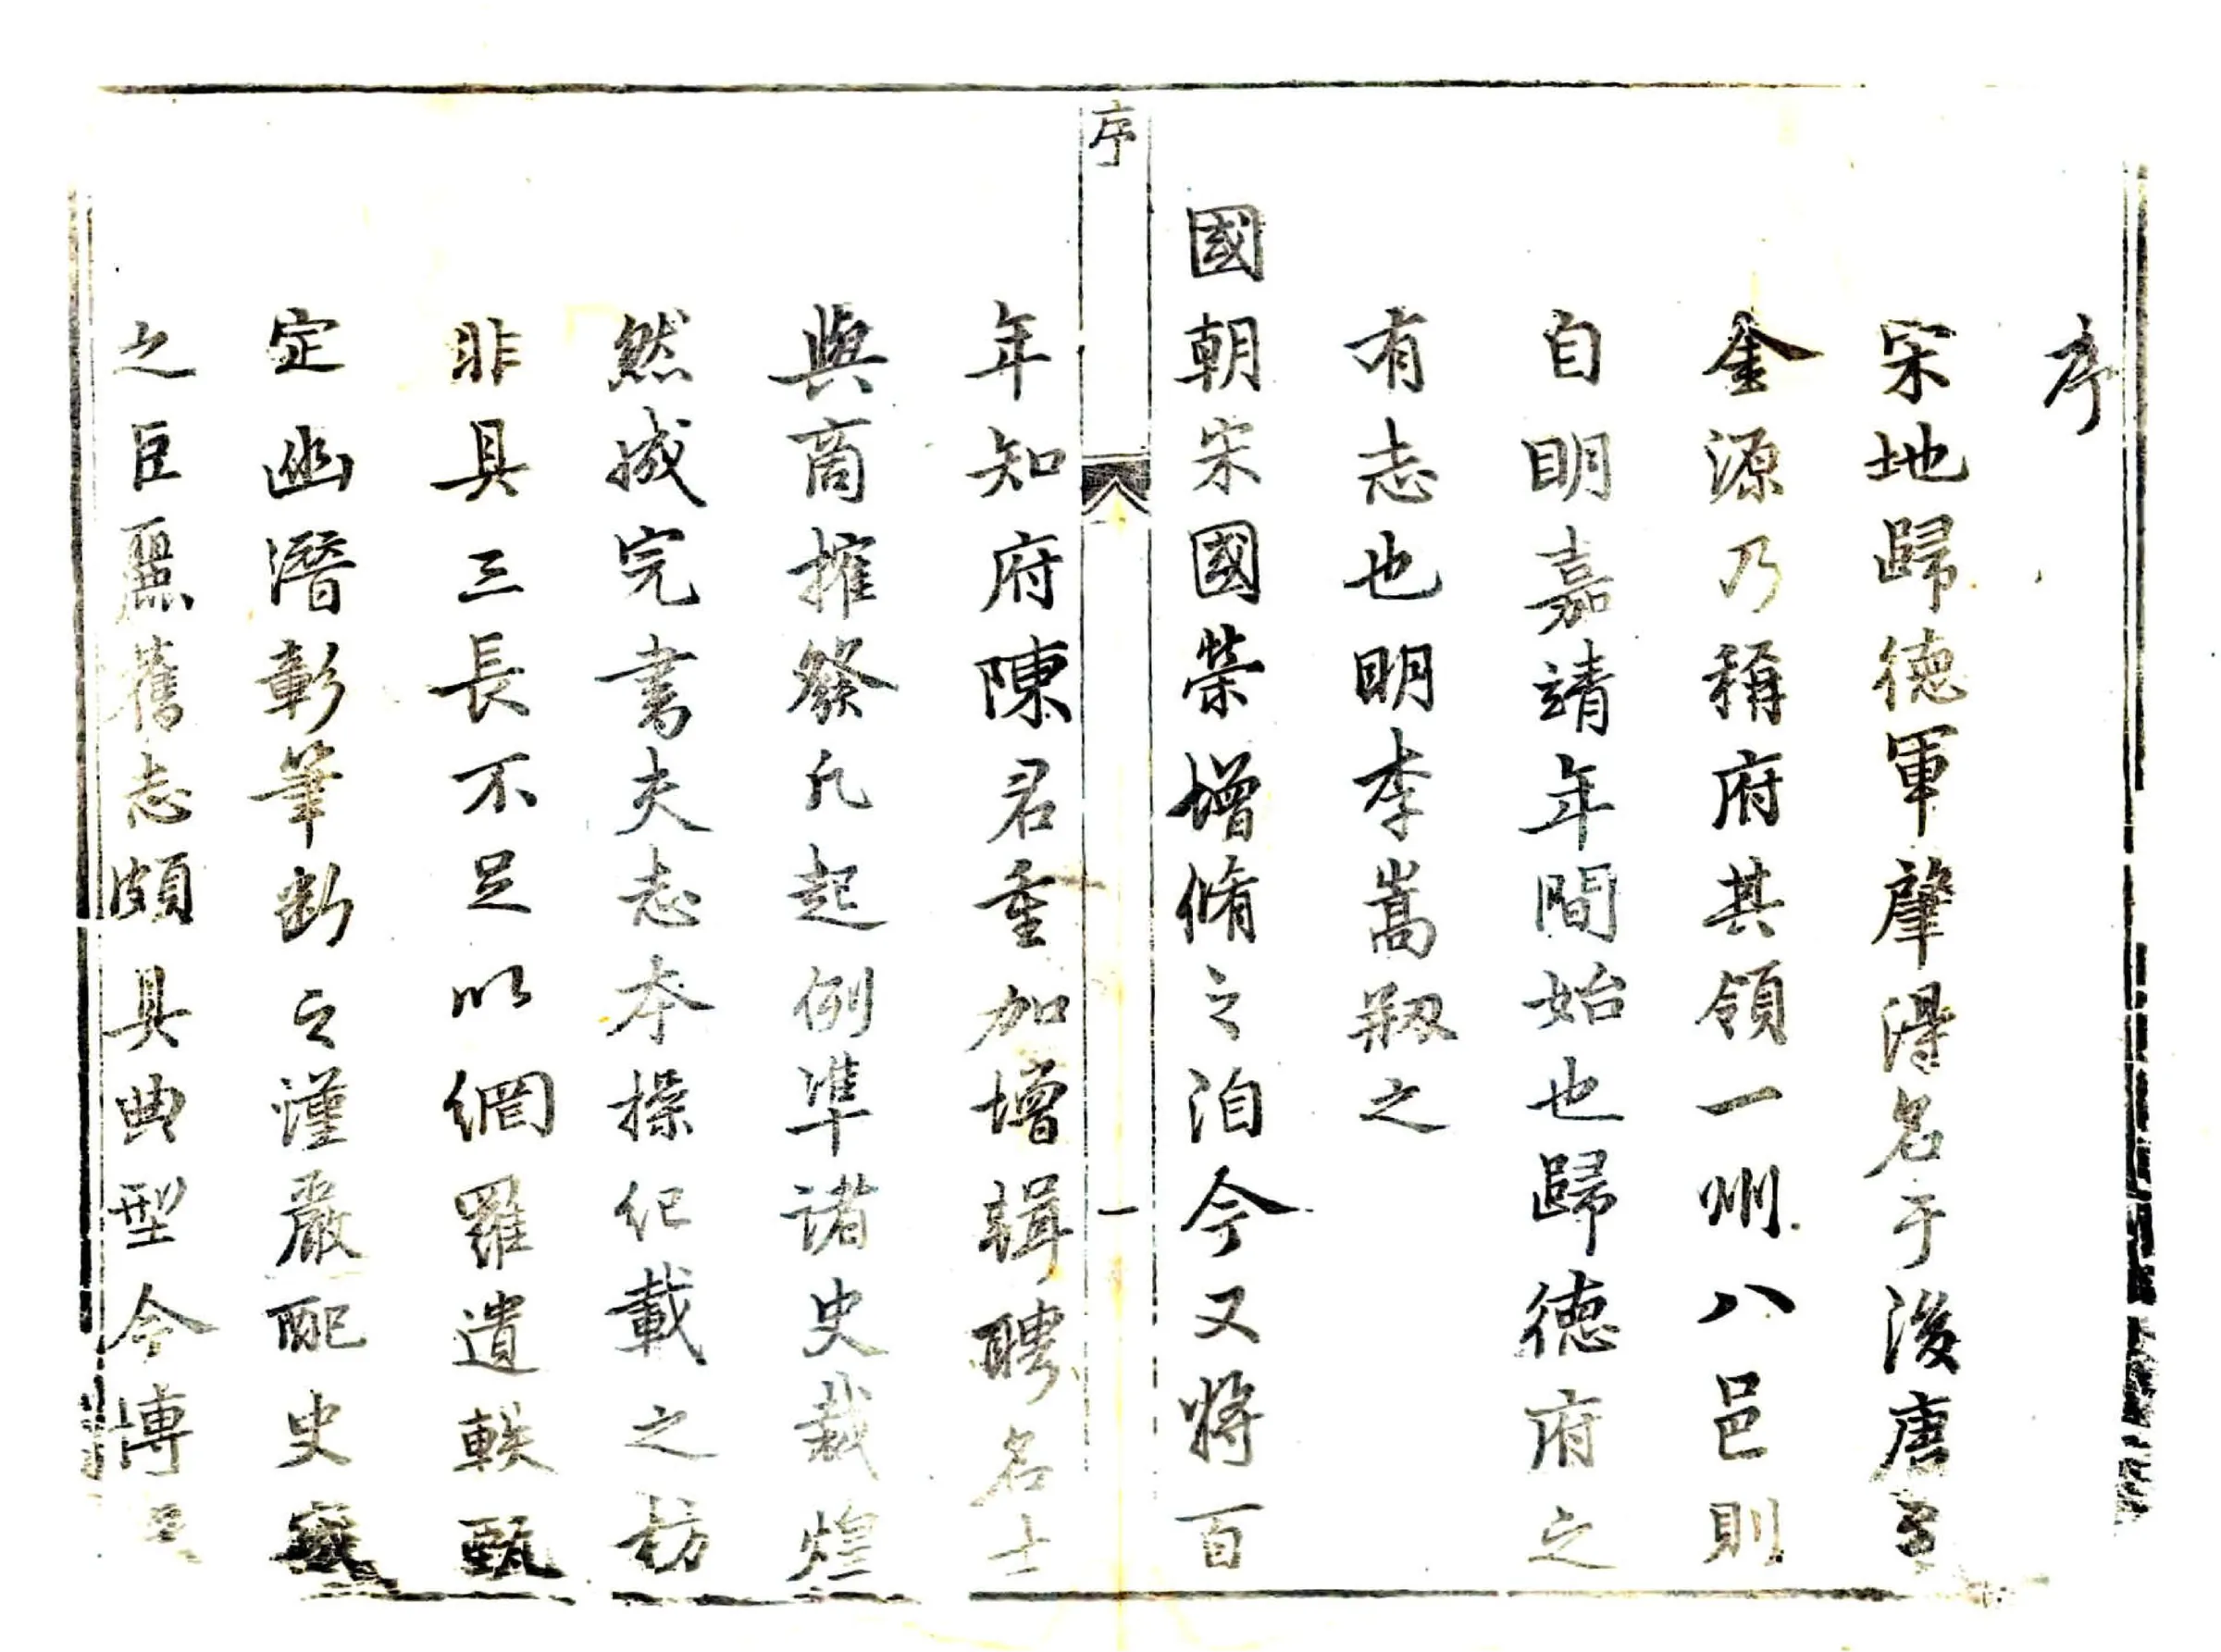 序
宋地歸德軍肇得名于後唐
金源乃稱府其領一州八邑則
自明嘉靖年間始也歸德府之
有志也明李嵩剏之
國朝宋國榮增脩之洎今又將百
序
一
年知府陳君重加增輯聘名士
與商搉發凡起例準諸史裁煌
然成完書夫志本操紀載之枋
非具三長不足以網羅遺軼甄
定幽潛彰筆斷之謹嚴配史
之巨麗舊志頗具典型今博